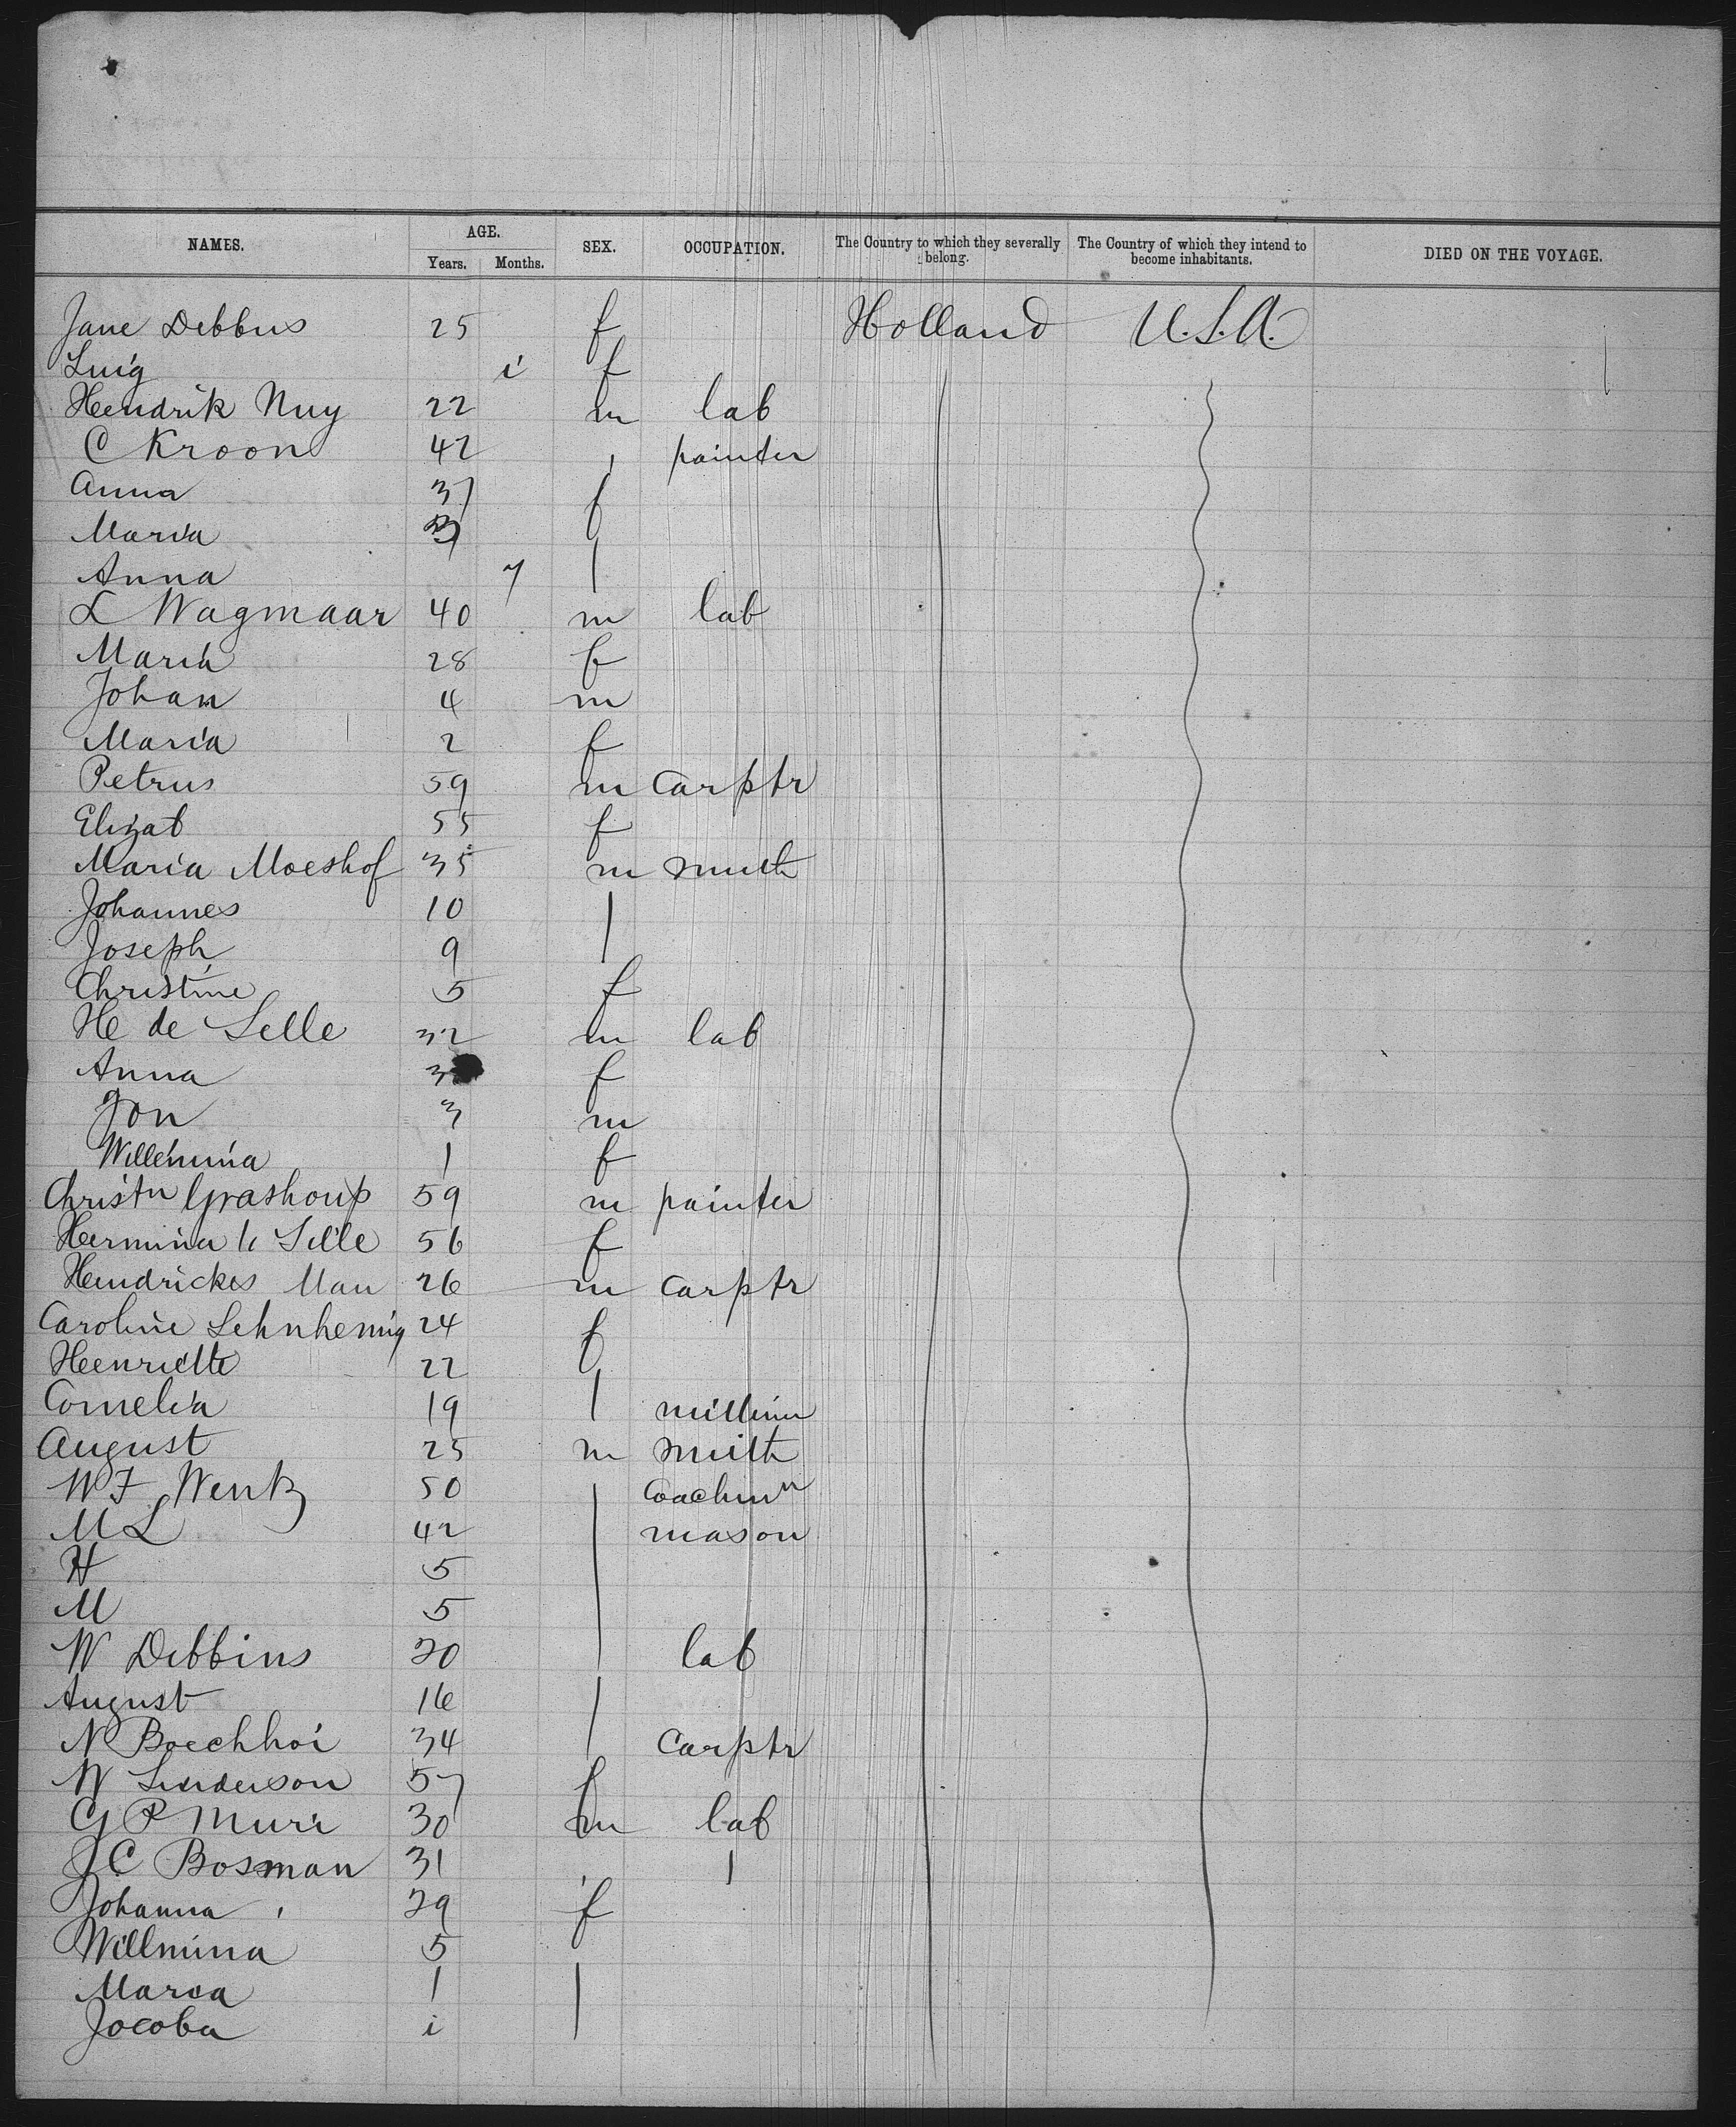 NAMES. AGE. SEX. OCCUPATION. The Country to which they severally belong. The Country of which they intend to become inhabitants. DIED ON THE VOYAGE.
Years. Months.
Jane Debbus 25 f Holland U.S.A.
Luig i f
Hendrik Nuy 22 m lab
C Kroon 42 painter
Anna 37 f
Maria
Anna 7
L Wagmaar 40 m lab
Maria 28 f
Johan 4 m
Maria 2 f
Petrus 59 m Carptr
Elizab 55 f
Maria Moeshof 35 m smith
Johannes 10
Joseph 9
Christine 5 f
He de Lelle 32 m lab
Anna f
Jon 3 m
Willemina 1 f
Christn Grashoup 59 m painter
Hermina Lelle 56 f
Hendrickes Man 26 m Carptr
Caroline Lehnhemig 24 f
Henriette 22
Cornelia 19 milliner
August 25 m smith
W F Wentz 50 Coachmn
M L 42 mason
H 5
M 5
W Debbins 20 lab
August 16
N Boechhoi 34 Carptr
W Lunderson 57 f
G P Muri 30 m lab
J C Bosman 31
Johanna 29 f
Willmina 5
Maria 1
Jocoba i